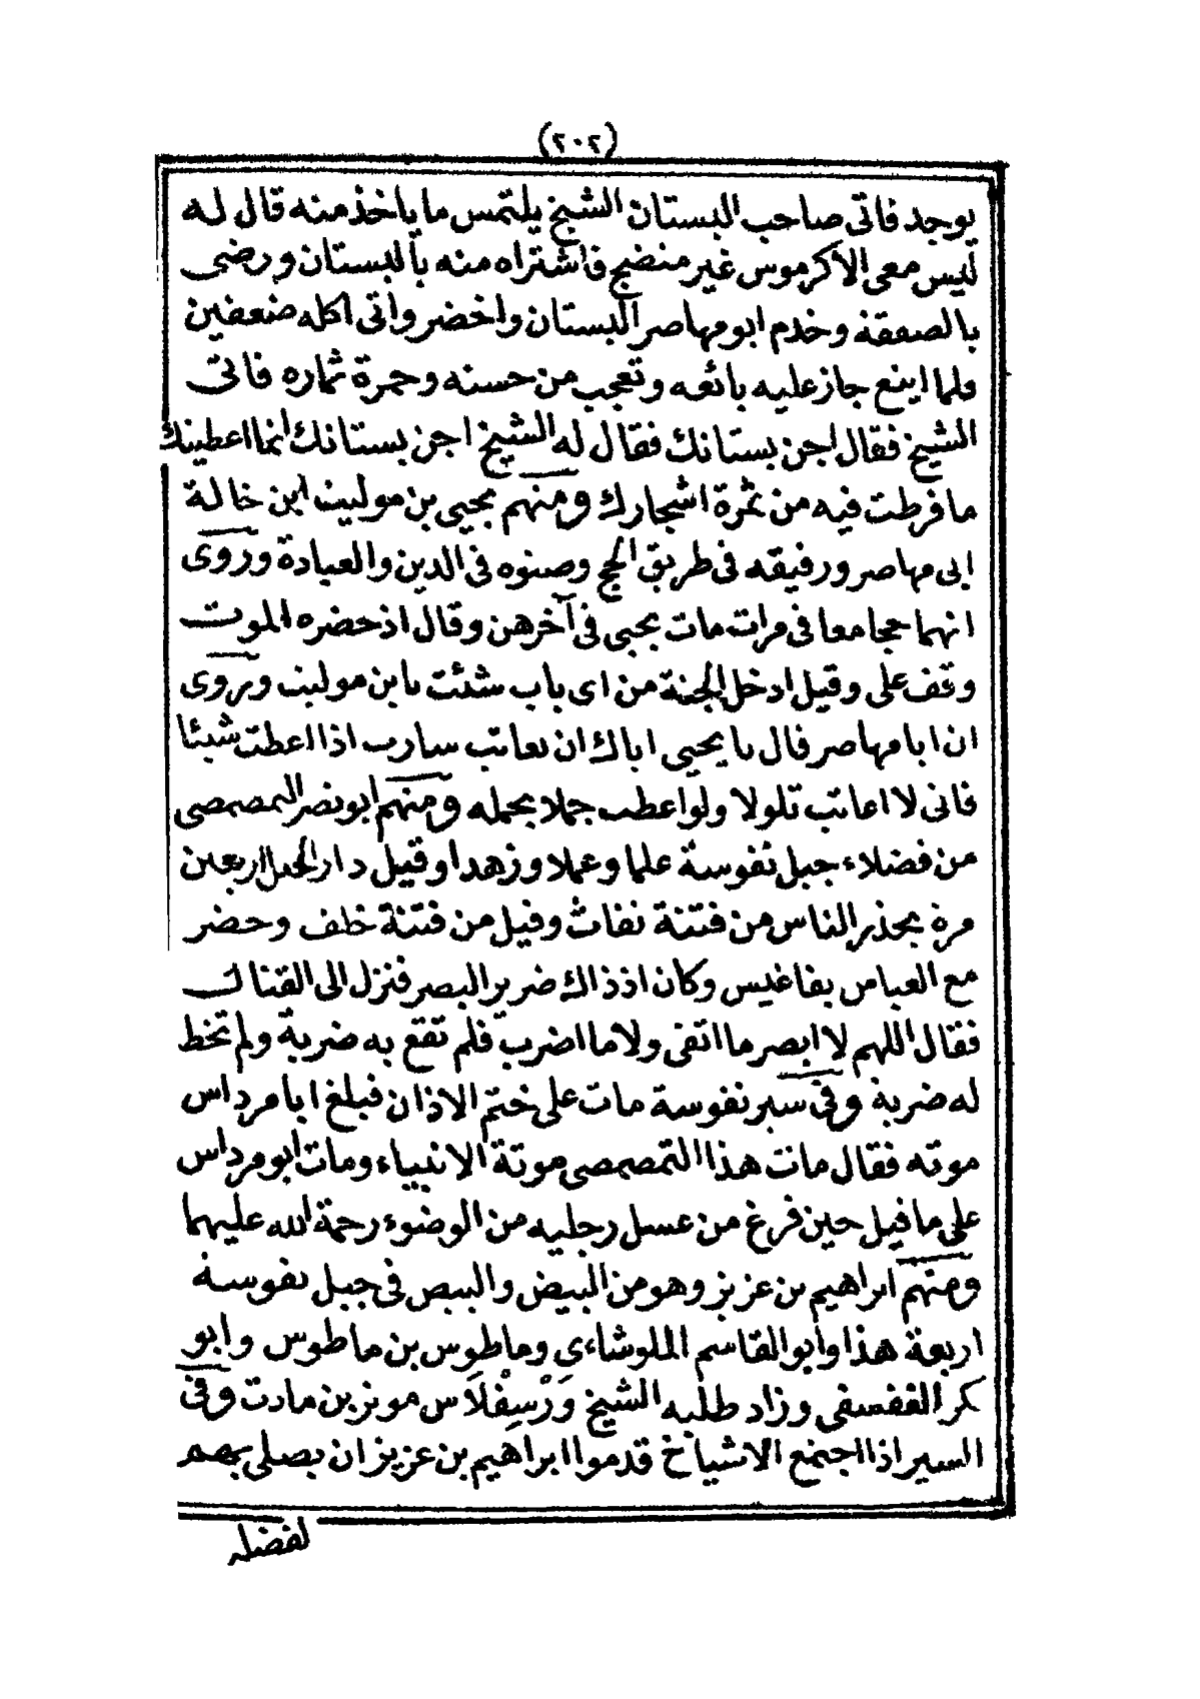 (٢٠٢)
يوجد فاتى صاحب البستان الشيخ يلتمس ما ياخذ منه قال له
ليس معى الاكرموس غير منضج فاشتراه منه بالبستان ورضى
بالصفقة وخدم ابو مهاصر البستان واخضر واتى اكله ضعفين
فلما اينع جاز عليه بائعه وتعجب من حسنه وحمرة ثماره فاتى
الشيخ فقال اجن بستانك فقال له الشيخ اجن بستانك انما اعطيتك
ما فرطت فيه من ثمرة اشجارك ومنهم يحيى بن موليت ابن خالة
ابى مهاصر ورفيقه فى طريق الحج وصنوه فى الدين والعبادة وروى
انهما حجا معا فى مرات مات يحيى فى آخرهن وقال اذ حضره الموت
وقف على وقيل ادخل الجنة من اى باب شئت يابن موليت وروى
ان ابا مهاصر قال يا يحيى اياك ان تعاتب سارب اذا اعطت شيئا
فانى لا اعاتب تلولا ولو اعطت جملا بحمله ومنهم ابو نصر التمصمصى
من فضلاء جبل نفوسة علما وعملا وزهدا وقيل دار الجبل اربعين
مرة يحذر الناس من فتنة نفاث وقيل من فتنة خلف وحضر
مع العباس بفاغيس وكان اذ ذاك ضرير البصر فنزل الى القتال
فقال اللهم لا ابصر ما اتقى ولا ما اضرب فلم تقع به ضربة ولم تخط
له ضربة وفى سير نفوسة مات على ختم الاذان فبلغ ابا مرداس
موته فقال مات هذا التمصمصى موتة الانبياء ومات ابو مرداس
على ما قيل حين فرغ من غسل رجليه من الوضوء رحمة الله عليهما
ومنهم ابراهيم بن عزيز وهو من البيض والبيض فى جبل نفوسة
اربعة هذا وابو القاسم الملوشاءى وماطوس بن ماطوس وابو
كر الغفسفى وزاد طلبه الشيخ وَرْسِفْلَاس مونز بن مادت وفى
السير اذا اجتمع الاشياخ قدموا ابراهيم بن عزيز ان يصلى بهم
لفضله